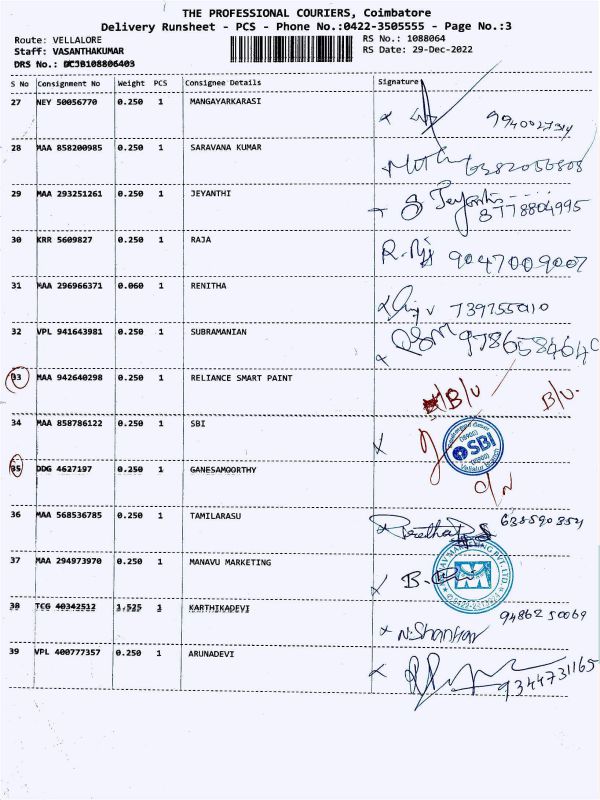 THE PROFESSIONAL COURIERS, Coimbatore
Delivery Runsheet - PCS - Phone No.:0422-3505555 - Page No.:3
Route: VELLALORE RS No.: 1088064
Staff: VASANTHAKUMAR RS Date: 29-Dec-2022
DRS No.: DCJB108806403
S No Consignment No Weight PCS Consignee Details Signature
27 NEY 50056770 0.250 1 MANGAYARKARASI
28 MAA 858200985 0.250 1 SARAVANA KUMAR
29 MAA 293251261 0.250 1 JEYANTHI 8778804995
30 KRR 5609827 0.250 1 RAJA 9047009007
31 MAA 296966371 0.060 1 RENITHA
32 VPL 941643981 0.250 1 SUBRAMANIAN
33 MAA 942640298 0.250 1 RELIANCE SMART PAINT B/U B/U.
34 MAA 858786122 0.250 1 SBI SBI
35 DDG 4627197 0.250 1 GANESAMOORTHY O/N
36 MAA 568536785 0.250 1 TAMILARASU
37 MAA 294973970 0.250 1 MANAVU MARKETING B.
38 TCG 40342512 1.525 1 KARTHIKADEVI N.Shankar 9486250069
39 VPL 400777357 0.250 1 ARUNADEVI 9344731165